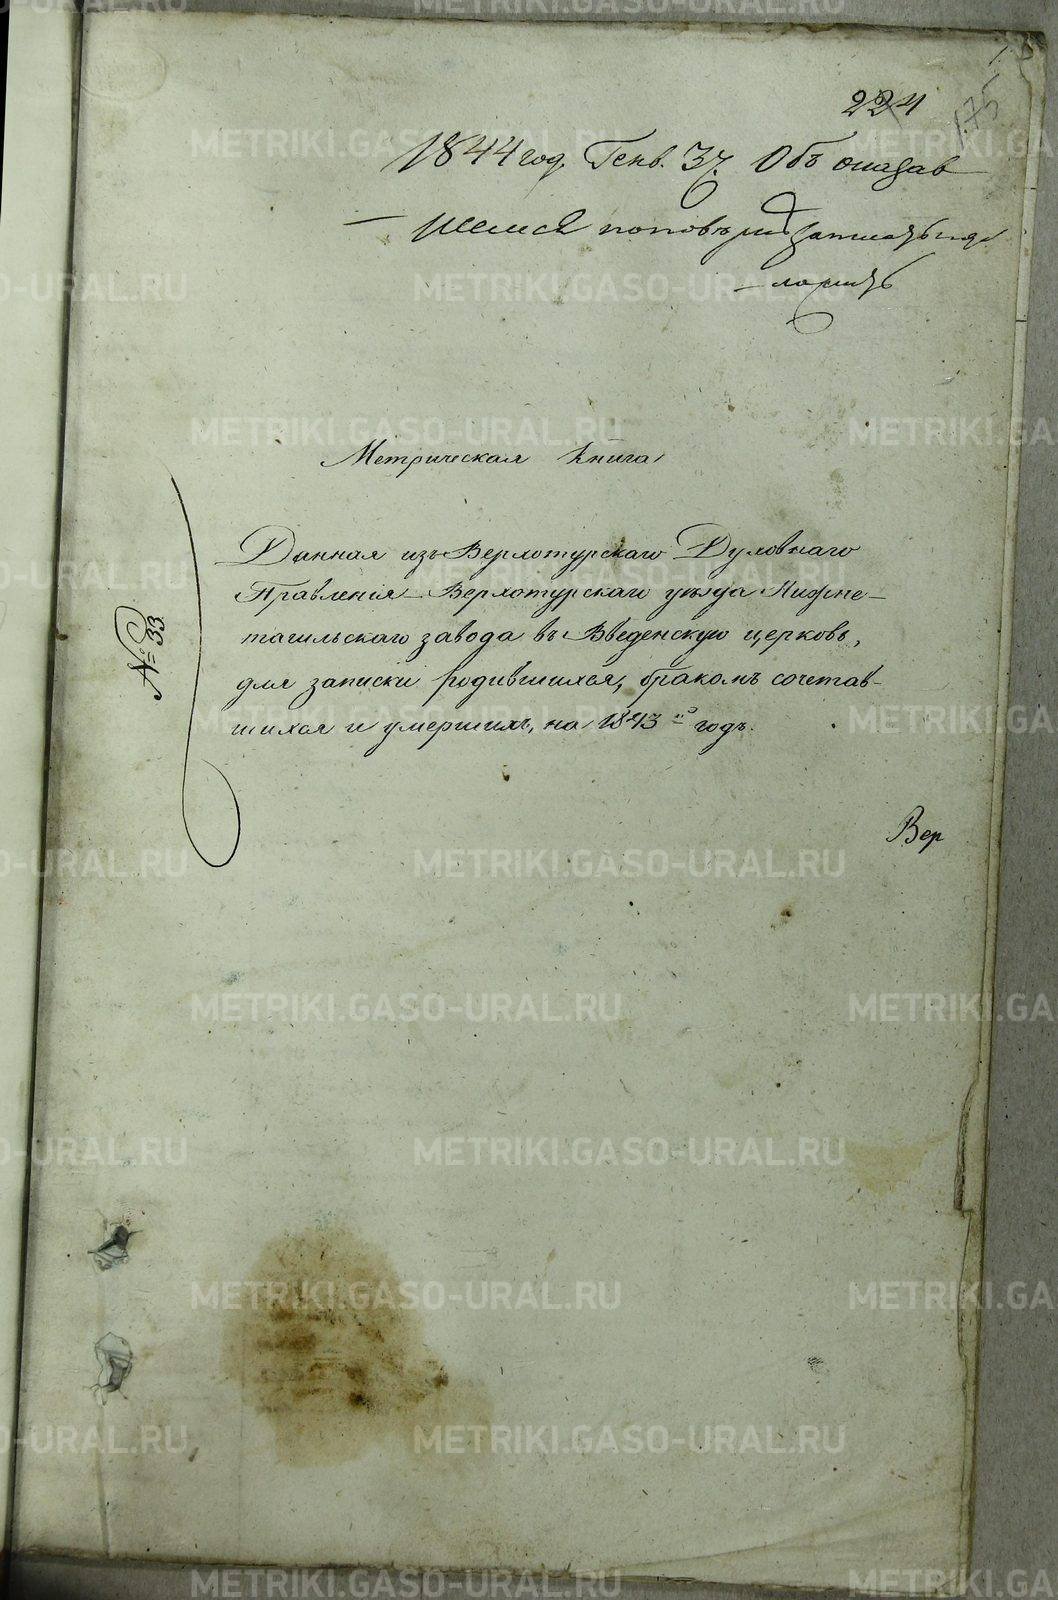 224
175
1844 год Генв. 31. Объ оказав
шемся
Метрическая Книга
Данная изъ Верхотурскаго Духовнаго
Правленія Верхотурскаго уѣзда Нижне-
тагильскаго завода въ Введенскую церковь,
№ 33
для записки родившихся, бракомъ сочетав-
шихся и умершихъ, на 1843й годъ.
Вер
METRIKI.GASO-URAL.RU